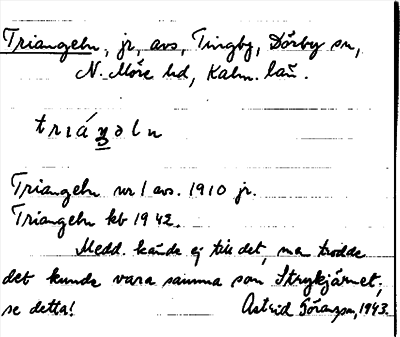 Triangeln, jr, avs, Tingby, Dörby sn,
N. Möre hd, Kalm. län.
trıáŋəln
Triangeln nr 1 avs. 1910 jr.
Triangeln kb 1942.
Medd. kände ej till det, men trodde
det kunde vara samma som Strykjärnet,
se detta! Astrid Göranzon, 1943.